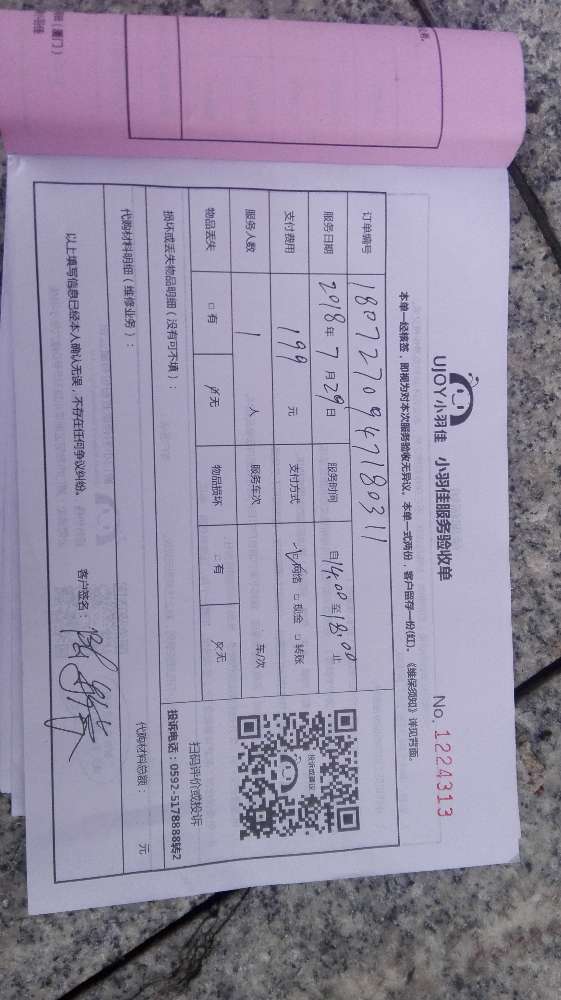 UJOY小羽佳 小羽佳服务验收单 No. 1224313
本单一经核签，即视为对本次服务验收无异议。本单一式两份，客户留存一份(红)。《维保须知》详见背面。
订单编号 1807270947180311
服务日期 2018年7月29日 服务时间 自14:00至18:00止
支付费用 199元 支付方式 ☑网络 □现金 □转账
服务人数 1人 服务车次 车/次
物品丢失 □有 ☑无 物品损坏 □有 ☑无
投诉或建议
扫码评价或投诉
投诉电话：0592-5178888转2
损坏或丢失物品明细（没有可不填）：
代购材料明细（维修业务）： 代购材料总额： 元
以上填写信息已经本人确认无误，不存在任何争议纠纷。 客户签名：